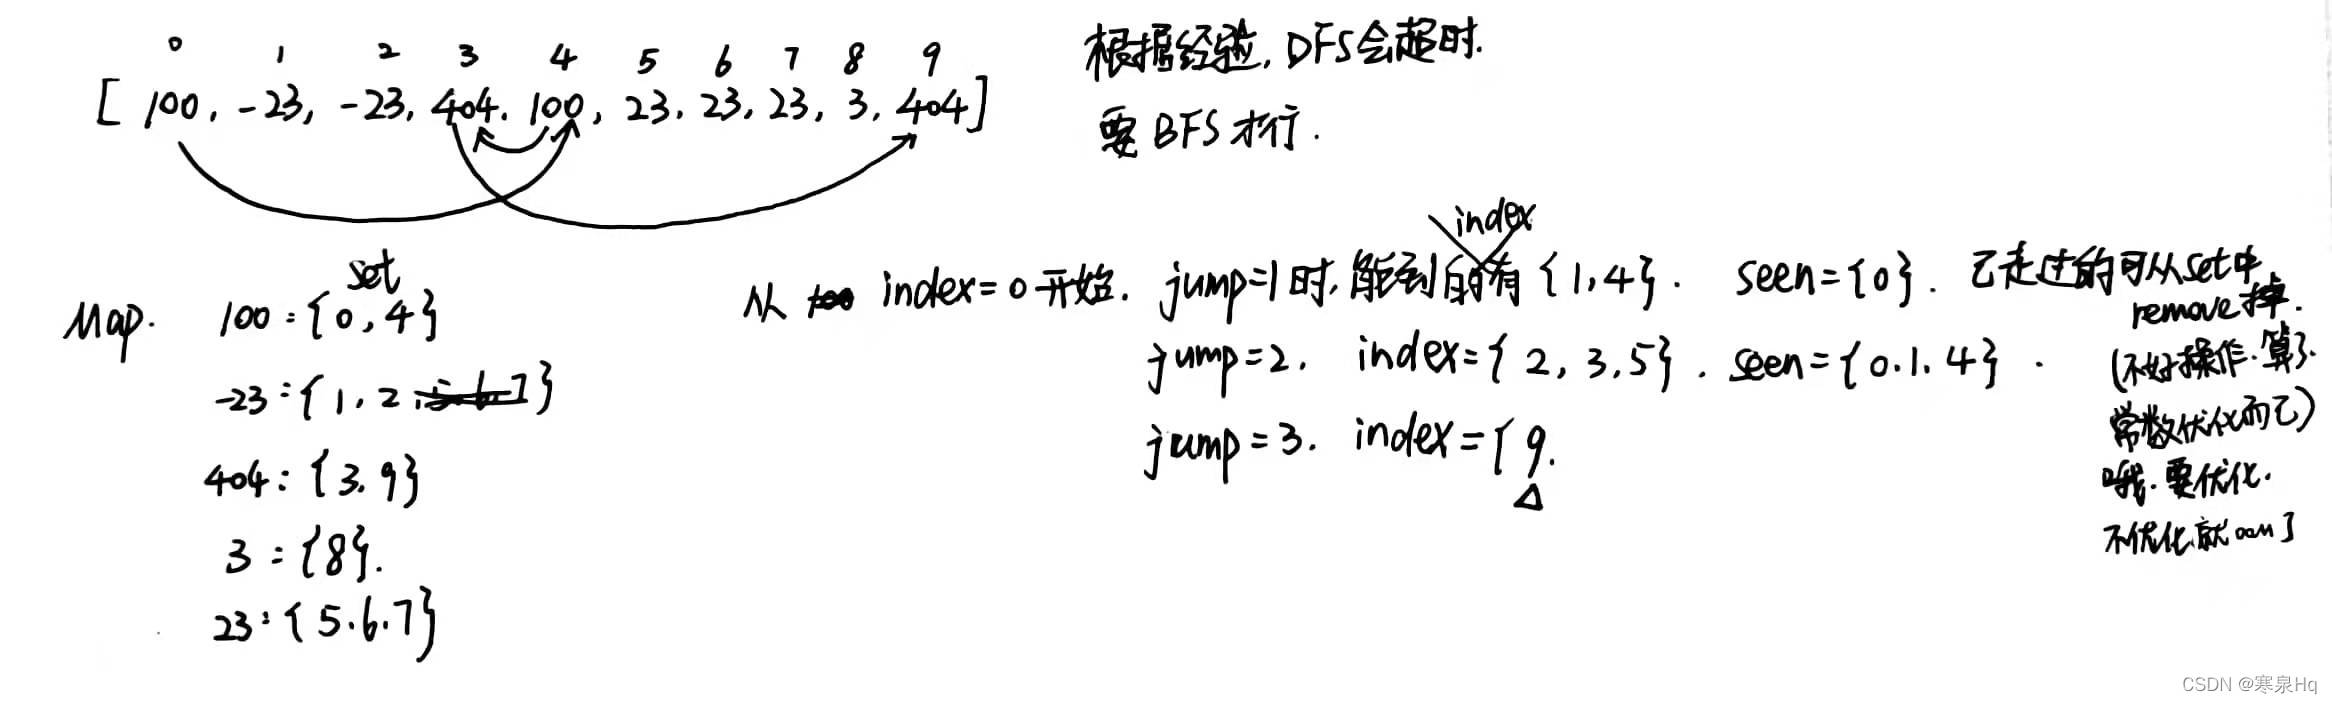 0 1 2 3 4 5 6 7 8 9
[ 100, -23, -23, 404. 100, 23, 23, 23, 3, 404]
根据经验, DFS会超时.
要 BFS 才行.
set
Map. 100 : {0, 4}
-23 : {1, 2 }
404 : {3, 9}
3 : {8}.
23 : {5.6.7}
index
从 index=0开始. jump=1时, 能到的有{1,4}. seen={0}. 已走过的可从set中
remove掉.
jump=2. index={2, 3, 5}. seen={0.1.4}.
(不好操作.算了.
常数优化而已)
jump=3. index={9.
△
哦.要优化.
不优化就oom了
CSDN @寒泉Hq